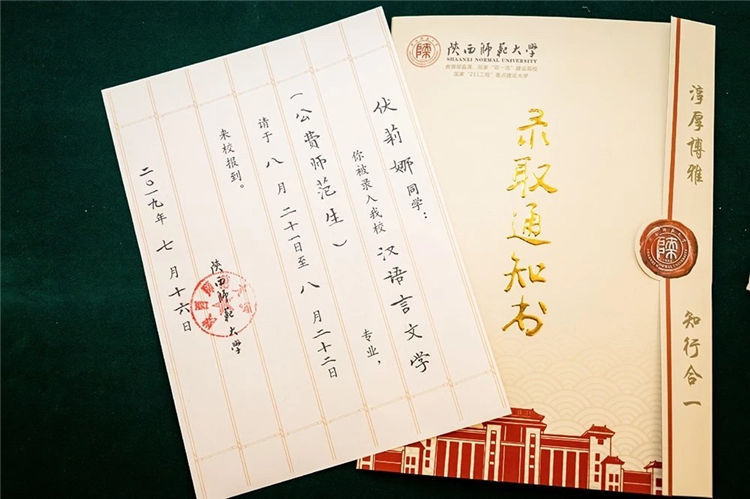 伏莉娜同学：
你被录入我校汉语言文学专业，
（公费师范生）
请于八月二十一日至八月二十二日
来校报到。
陕西师范大学
二〇一九年七月十六日
陕西师范大学
SHAANXI NORMAL UNIVERSITY
教育部直属、国家“双一流”建设高校
国家“211工程”重点建设大学
录取通知书
淳厚博雅
知行合一
陕